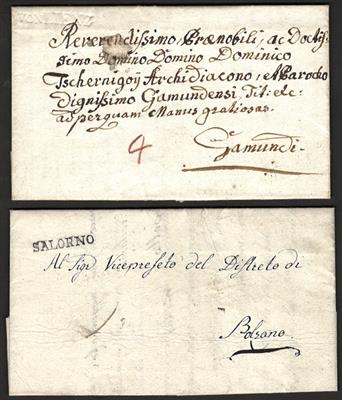 Reverendissimo, Prænobili, ac Doctis-
simo Domino Domino Dominico
Tschernigoÿ Archidiacono, et Parocho
Dignissimo Gamundensi, Tit: etc:
ad perquam Manus gratiosas.
4
Gamundi.
SALORNO
Al Sigr Viceprefeto del Distreto di
Bolzano.